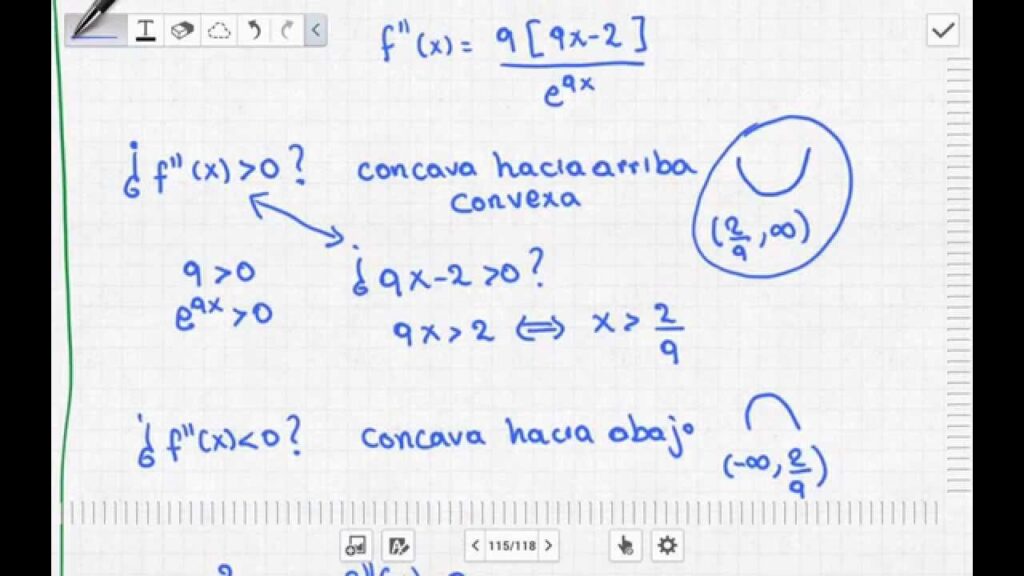 f''(x) = 9[9x-2] / e^{9x}
¿f''(x)>0? concava hacia arriba
convexa
(2/9, ∞)
9>0 ¿9x-2>0?
e^{9x}>0
9x>2 ⟺ x> 2/9
¿f''(x)<0? concava hacia abajo
(-∞, 2/9)
115/118